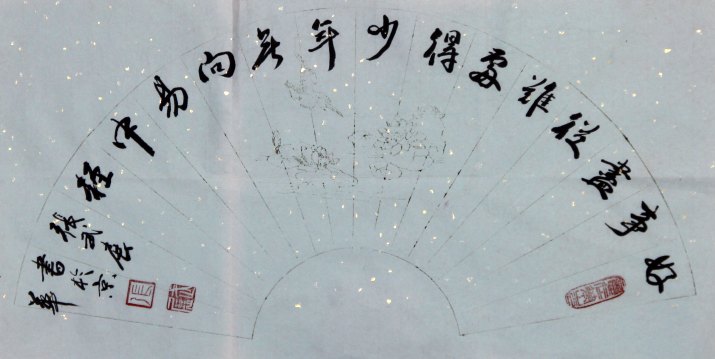 好事盡從難處得少年無向易中輕
張
書於京
華